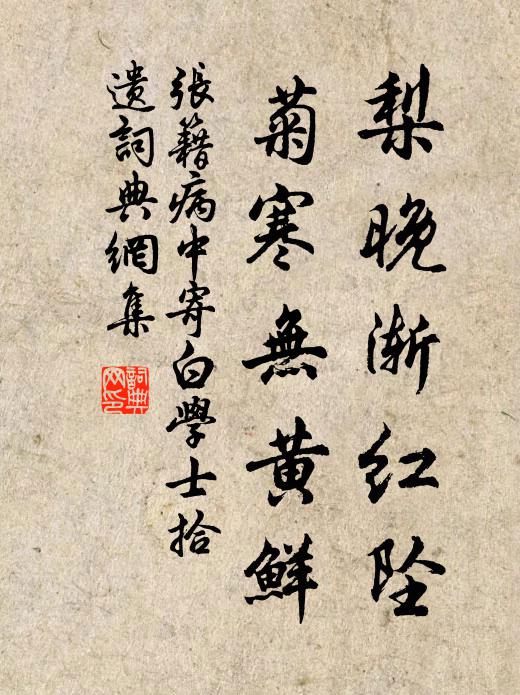 梨晚渐红坠
菊寒無黄鮮
張籍病中寄白學士拾
遺詞典網集
詞典網印